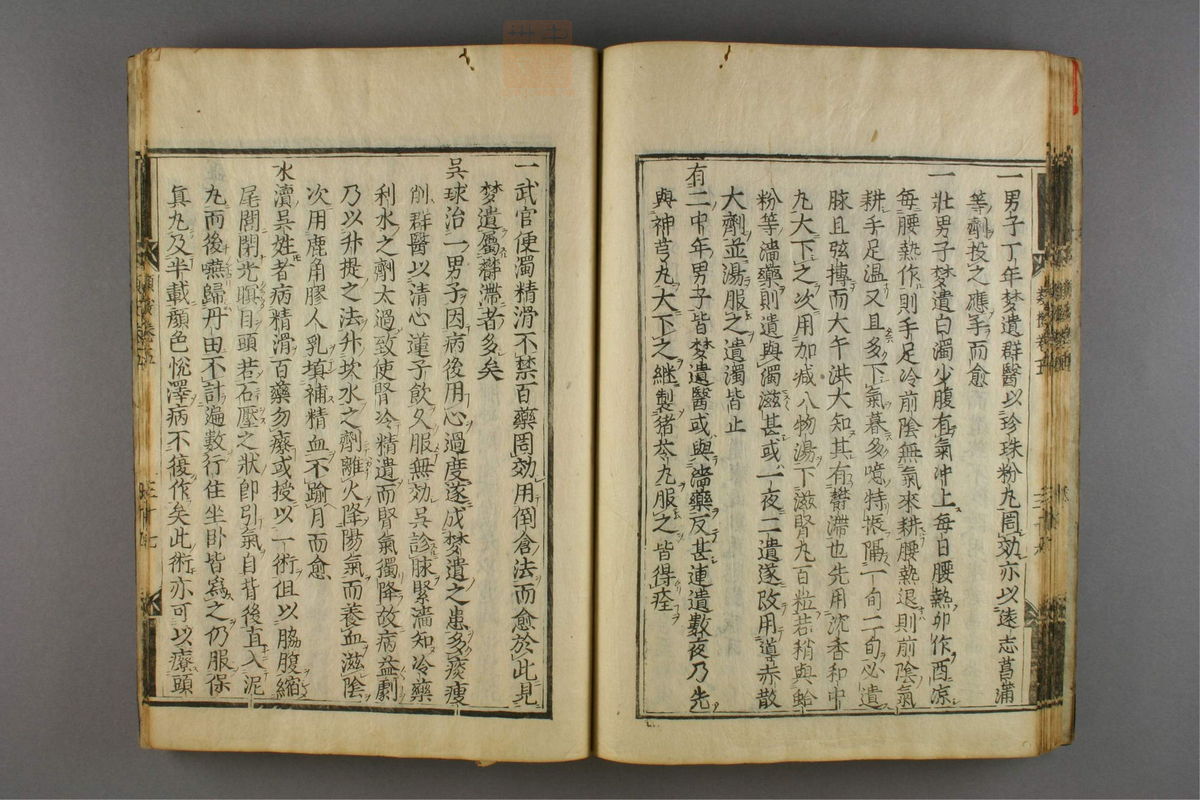 一男子丁年梦遺群醫以珍珠粉丸罔効亦以遠志菖蒲
等劑投之應手而愈
一壯男子梦遺白濁少腹有氣冲上每日腰熱卯作酉凉
每腰熱作則手足冷前陰無氣來耕腰熱退則前陰氣
耕手足溫又且多下氣暮多噫特悵隔一旬二旬必遺
脉且弦搏而大午洪大知其有欝滯也先用沈香和中
丸大下之次用加减八物湯下滋腎丸百粒若稍與蛤
粉等濇藥則遺與濁滋甚或一夜二遺遂改用導赤散
大劑並湯服之遺濁皆止
有二中年男子皆梦遺醫或與濇藥反甚連遺數夜乃先
與神芎丸大下之継製猪苓丸服之皆得痊
一武官便濁精滑不禁百藥罔効用倒倉法而愈於此見
梦遺屬欝滯者多矣
吳球治一男子因病後用心過度遂成梦遺之患多痰瘦
削群醫以清心蓮子飲久服無効吳診脉緊濇知冷藥
利水之劑太過致使腎冷精遺而腎氣獨降故病益劇
乃以升提之法升坎水之劑離火降陽氣而養血滋陰
次用鹿角膠人乳填補精血不踰月而愈
水瀆吳姓者病精滑百藥勿療或授以一術但以脇腹縮
尾閭閉光瞑目頭若石壓之狀卽引氣自背後直入泥
丸而後嚥歸丹田不計遍數行住坐卧皆爲之仍服保
眞丸及半載顏色悅澤病不復作矣此術亦可以療頭